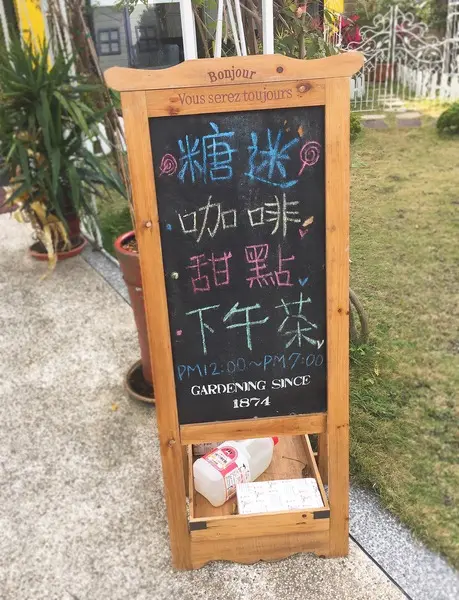 Bonjour
Vous serez toujours
糖迷
咖啡
甜點
下午茶
PM12:00~PM7:00
GARDENING SINCE
1874